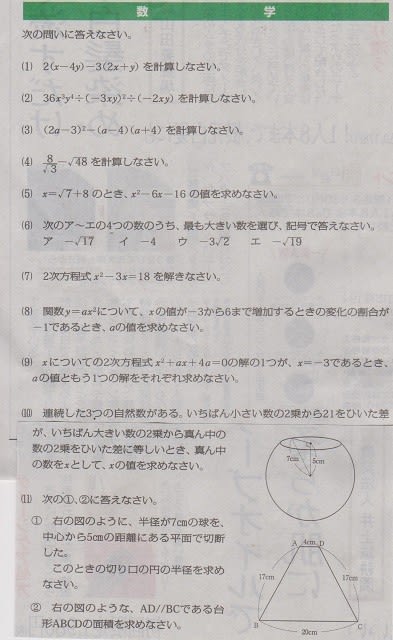 数 学
次の問いに答えなさい。
(1) 2(x−4y)−3(2x+y) を計算しなさい。
(2) 36x³y⁴÷(−3xy)²÷(−2xy) を計算しなさい。
(3) (2a−3)²−(a−4)(a+4) を計算しなさい。
(4) 8/√3−√48 を計算しなさい。
(5) x=√7+8 のとき、x²−6x−16 の値を求めなさい。
(6) 次のア〜エの4つの数のうち、最も大きい数を選び、記号で答えなさい。
ア −√17 イ −4 ウ −3√2 エ −√19
(7) 2次方程式 x²−3x=18 を解きなさい。
(8) 関数y=ax²について、xの値が−3から6まで増加するときの変化の割合が
−1であるとき、aの値を求めなさい。
(9) xについての2次方程式 x²+ax+4a=0の解の1つが、x=−3であるとき、
aの値ともう1つの解をそれぞれ求めなさい。
(10) 連続した3つの自然数がある。いちばん小さい数の2乗から21をひいた差
が、いちばん大きい数の2乗から真ん中
の数の2乗をひいた差に等しいとき、真ん中
の数をxとして、xの値を求めなさい。
7cm 5cm
(11) 次の①、②に答えなさい。
① 右の図のように、半径が7cmの球を、
中心から5cmの距離にある平面で切断
した。
このときの切り口の円の半径を求め
なさい。
② 右の図のような、AD//BCである台
形ABCDの面積を求めなさい。
A 4cm D
17cm 17cm
B 20cm C